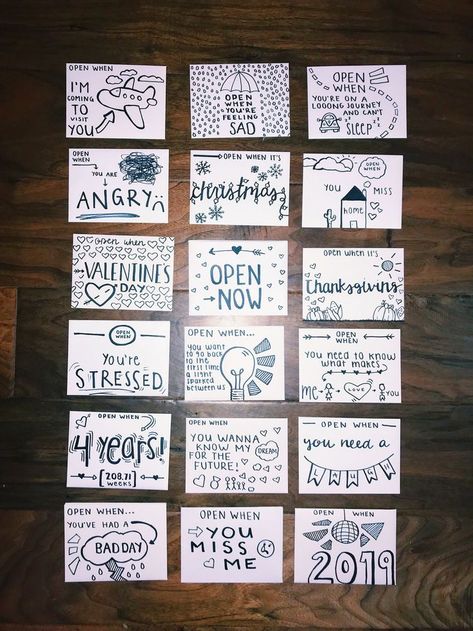 OPEN WHEN
I'M
COMING
TO
VISIT
YOU
OPEN
WHEN
YOU'RE
FEELING
SAD
OPEN
WHEN
YOU'RE ON A
LOOONG JOURNEY
AND CAN'T
sleep
OPEN
WHEN
YOU ARE
ANGRY
OPEN WHEN IT'S
christmas
OPEN
WHEN
YOU MISS
home
open when
VALENTINE'S
DAY
OPEN
NOW
OPEN WHEN IT'S
Thanksgiving
OPEN
WHEN
You're
STRESSED
OPEN WHEN...
you want
to go back
to the
first time
a light
sparked
between us
OPEN WHEN
you need to know
what makes
me
LOVE
you
OPEN WHEN
4 years!
[208.71]
weeks
OPEN WHEN
YOU WANNA
KNOW MY
DREAM
FOR THE
FUTURE!
OPEN WHEN
you need a
OPEN WHEN...
YOU'VE HAD A
BAD DAY
OPEN WHEN
YOU
MISS
ME
OPEN WHEN
2019